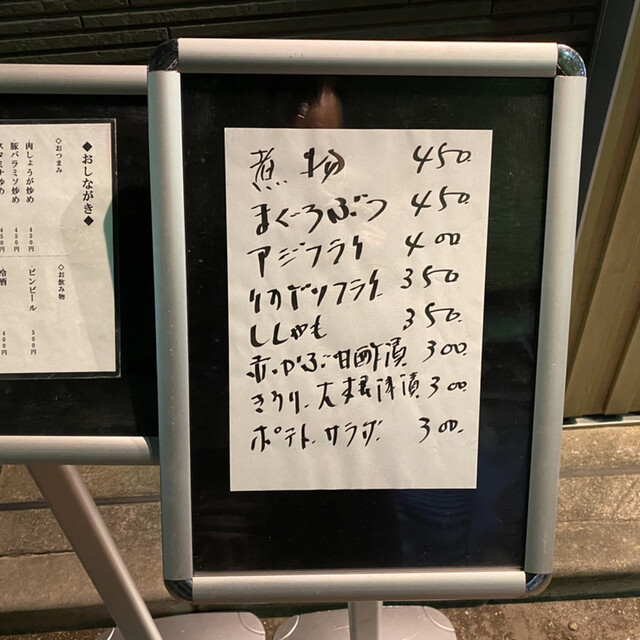 煮物 450.
まぐろぶつ 450.
アジフライ 400
350.
ししゃも 350.
赤かぶ甘酢漬 300.
きうり、大根 漬 300.
ポテトサラダ 300.
◆おしながき◆
◇おつまみ
肉しょうが炒め 450円
豚バラミソ炒め 450円
スタミナ炒め 450円
◇お飲み物
ビンビール 500円
冷酒 400円